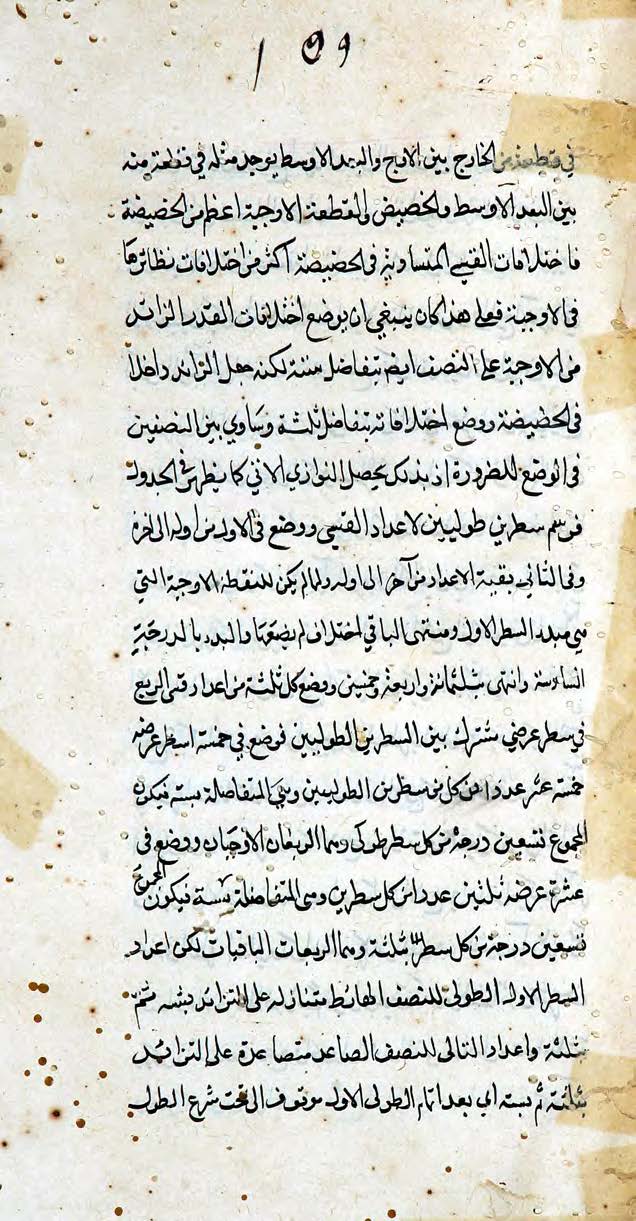 ١٥٩
في قطعة من الخارج بين الاوج والبعد الاوسط يوجد مثله في قطعة منه
بين البعد الاوسط والحضيض والقطعة الاوجية اعظم من الحضيضة
فاختلافات القسي المتساوية في الحضيضة اكثر من اختلافات نظائرها
في الاوجية فعلى هذا كان ينبغي ان يوضع اختلافات القدر الزائد
من الاوجية على النصف ايضم بتفاضل ستة لكنه جعل الزائد داخلا
في الحضيضة ووضع اختلافاته بتفاضل ثلثة وساوي بين النصفين
في الوضع للضرورة اذ بذلك يحصل التوازي الاتي كما يظهر في الجدول
فرسم سطرين طوليين لاعداد القسي ووضع في الاول من اوله الى اخره
وفي الثاني بقية الاعداد من آخره الى اوله ولما لم يكن للنقطة الاوجية التي
هي مبدا السطر الاول ومنتهى الباقي اختلاف لم يضعها والبدء بالدرجة
السادسة وانتهى بثلثمائة واربعة وخمسين ووضع كل ثلثة من اعداد قسى الربع
في سطر عرضي مشترك بين السطرين الطوليين فوضع في خمسة اسطر عرضه
خمسة عشر عددا من كل من سطرين الطوليين وهي المتفاضلة بستة فيكون
المجموع تسعين درجة من كل سطر طولي وهما الربعان الاوجيان ووضع في
عشرة عرضه ثلثين عددا من كل سطرين وهى المتفاضلة بستة فيكون المجموع
تسعين درجة من كل سطر بثلثة وهما الربعات الباقيات لكن اعداد
السطر الاول الطولي للنصف الهابط متنازله على التزائد بسته ثم
بثلثة واعداد التالى للنصف الصاعد متصاعدة على التزائد
بثلثة ثم بسته اي بعد اتمام الطولى الاول موقوف الى تحت شرع الطول